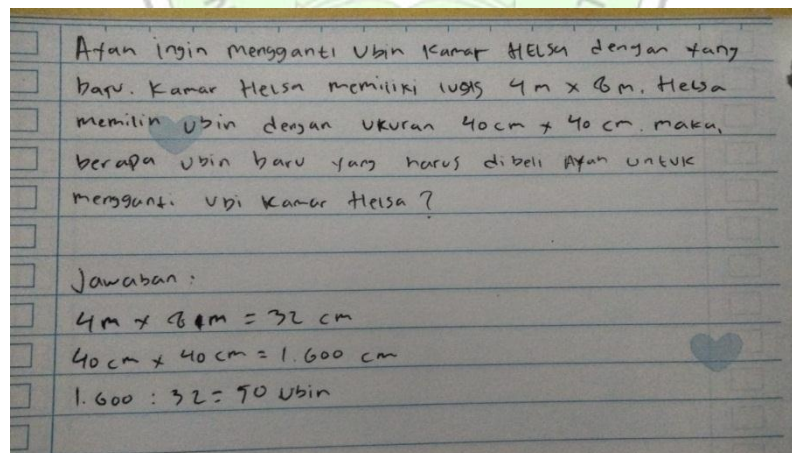 Ayan ingin mengganti Ubin Kamar HELSA dengan yang
baru. Kamar Helsa memiliki luas 4 m x 8 m. Helsa
memilih ubin dengan ukuran 40 cm x 40 cm. maka,
berapa ubin baru yang harus dibeli Ayan untuk
mengganti ubi kamar Helsa ?
Jawaban :
4 m x 8 m = 32 cm
40 cm x 40 cm = 1.600 cm
1.600 : 32 = 50 ubin